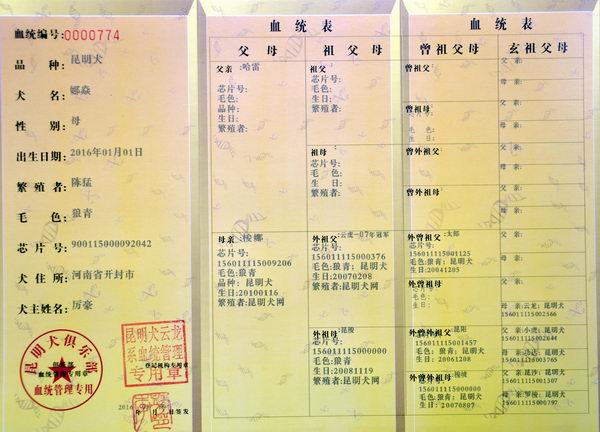 血统编号:0000774
品 种:昆明犬
犬 名:娜焱
性 别:母
出生日期:2016年01月01日
繁 殖 者:陈猛
毛 色:狼青
芯 片 号:900115000092042
犬 住 所:河南省开封市
犬主姓名:厉豪
昆明犬俱乐部
血统管理专用章
血统管理专用
昆明犬云龙
系血统管理
专用章
登记机构专用章
年 月 日签发
血 统 表
父 母
祖 父 母
父亲:哈雷
芯片号:
毛色:
品种:
生日:
繁殖者:
祖父
芯片号:
毛色:
生日:
繁殖者:
祖母
芯片号:
毛 色:
生 日:
繁殖者:
母亲:梭娜
芯片号:
156011115009206
毛色:狼青
品种: 昆明犬
生日:20100116
繁殖者:昆明犬网
外祖父:云虎-07年冠军
芯片号:
156011115000376
毛色:狼青: 昆明犬
生日:20070208
繁殖者:昆明犬网
外祖母:昆梭
芯片号:
156011115000000
毛色:狼青
生日:20081119
繁殖者:昆明犬网
血 统 表
曾祖父母
玄祖父母
曾祖父
曾祖母
毛 色:
生 日:
曾外祖父:
曾外祖母
外曾祖父:太郎
芯片号:
156011115001125
毛色:狼青: 昆明犬
生日:20041205
外曾祖母
芯片号:
毛色:
生日:
外曾外祖父:昆阳
芯片号:
156011115001457
毛色:狼青: 昆明犬
生日:20061208
外曾外祖母:昆坡
芯片号:
156011115000000
毛色:狼青: 昆明犬
生日:20070807
父 亲:
母 亲:
父 亲:
母 亲:
父 亲:
母 亲:
父 亲:
母 亲:
父 亲:
母 亲:
父 亲:
母 亲:云龙: 昆明犬
156011115002566
父 亲:小虎: 昆明犬
156011115002644
昆明犬
156011115001365
父 亲:昆沙: 昆明犬
156011115001307
母 亲:罗梭: 昆明犬
156011115001797